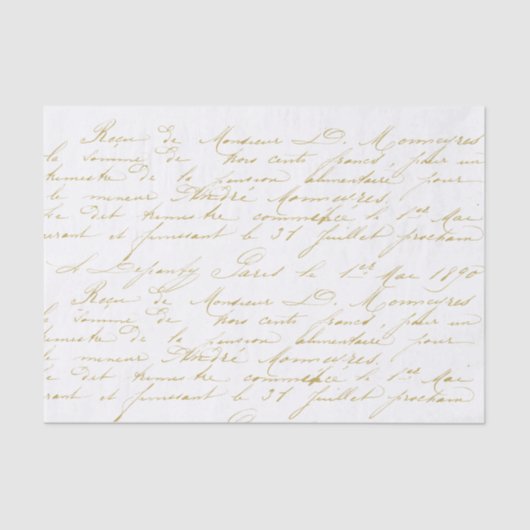 Reçu de Monsieur D. Monmeyres
la somme de trois cents francs, pour un
trimestre de la pension alimentaire pour
le mineur André Monmeyres.
Le dit trimestre commence le 1er Mai
urant et finissant le 31 Juillet prochain
Paris le 1er Mai 1890
Reçu de Monsieur D. Monmeyres
la somme de trois cents francs, pour un
trimestre de la pension alimentaire pour
le mineur André Monmeyres.
Le dit trimestre commence le 1er Mai
rant et finissant le 31 Juillet prochain